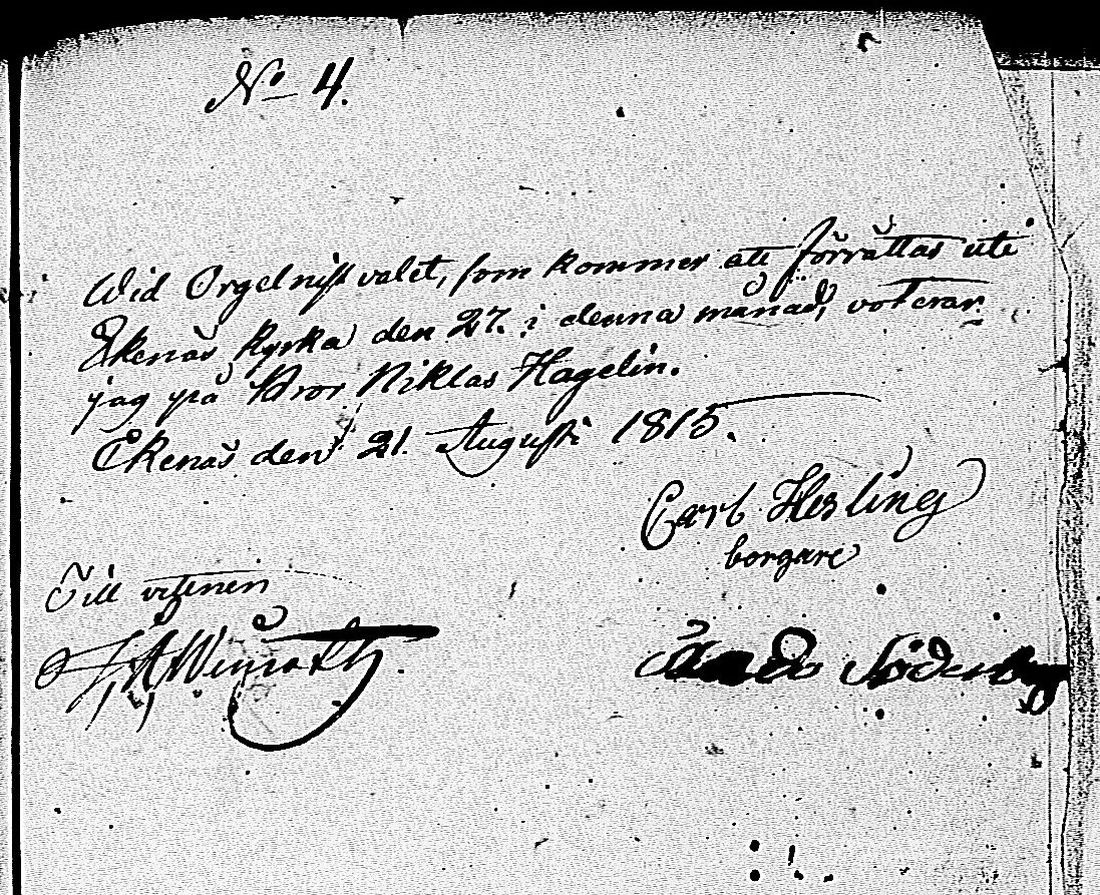 No 4.
Wid Orgelnist valet, som kommer att förrättas uti
Ekenäs kyrka den 27. i denna månad, voterar
jag på Hror Niklas Hagelin.
Ekenäs den 21. Augusti 1815.
Carl Hesling
borgare
Till vitnen
Söderberg